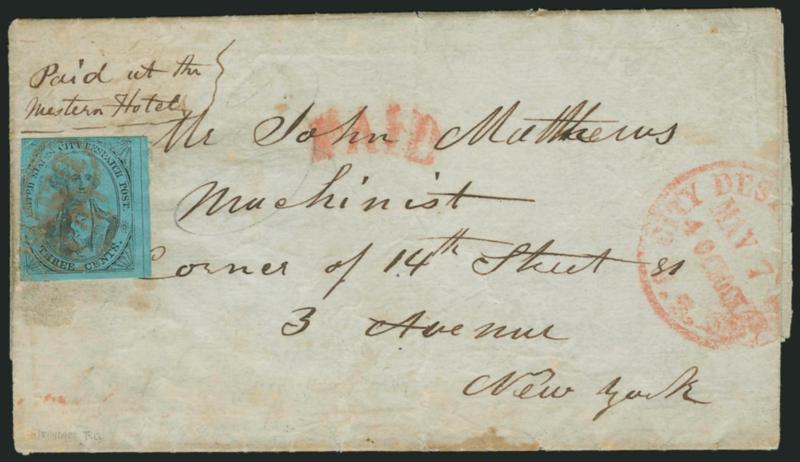 Paid at the
Western Hotel
PAID
UNITED STATES CITY DESPATCH POST.
THREE CENTS.
Mr John Matthews
Machinist
Corner of 14th Street &
3 Avenue
New York
CITY DES
MAY 7
4 O'CLOCK
U.S.